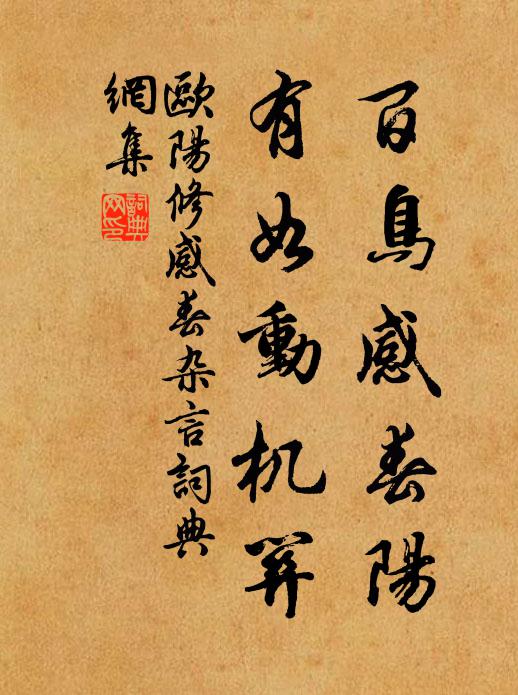 百鳥感春陽
有如動机關
歐陽修感春杂言詞典
網集
詞典
网印